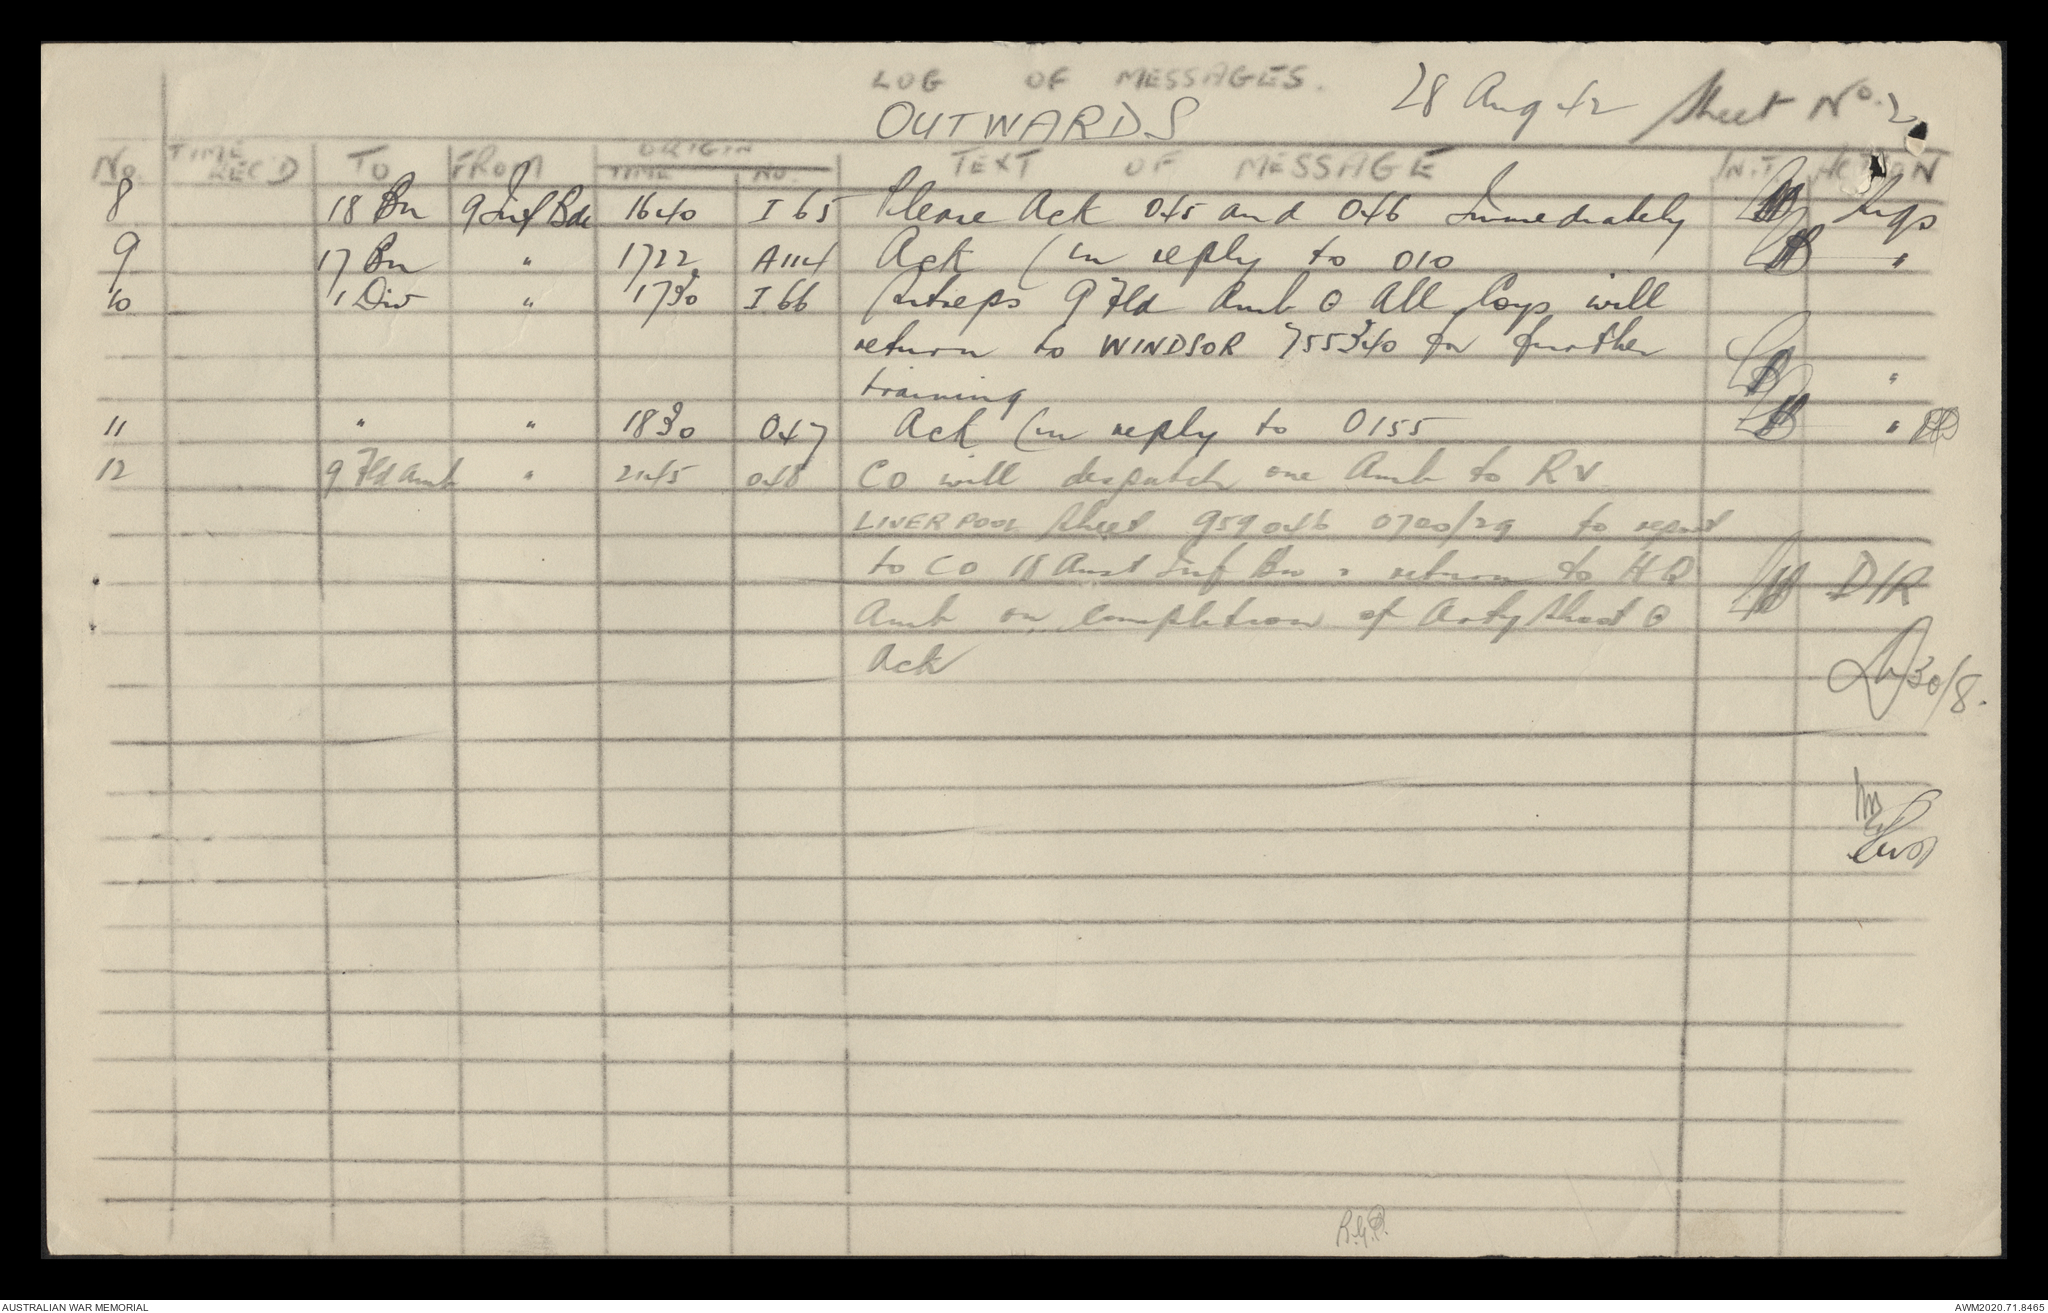 LOG OF MESSAGES.
OUTWARDS 28 Aug 42 Sheet No. 2
No. TIME REC'D TO FROM ORIGIN TIME NO. TEXT OF MESSAGE INIT ACTION
8 18 Bn 9 Inf Bde 1640 I 65 Please Ack 045 and 046 Immediately Sigs
9 17 Bn " 1722 A114 Ack (in reply to 010 "
10 1 Div " 1730 I 66 9 Fld Amb ⊙ All Coys will
return to WINDSOR 755340 for further
training "
11 " " 1830 047 Ack (in reply to 0155 "
12 9 Fld Amb " 2145 048 CO will despatch one Amb to RV
LIVERPOOL Sheet 959046 0700/29 to report
to CO 18 Aust Inf Bn return to HQ D/R
Amb on completion of Arty Shoot ⊙
Ack
30/8.
AUSTRALIAN WAR MEMORIAL AWM2020.71.8465